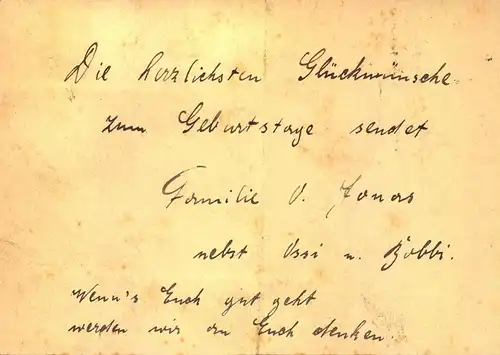 Die herzlichsten Glückwünsche
zum Geburtstage sendet
Familie O. Jonas
nebst Ossi u. Bobbi.
Wenn's Euch gut geht
werden wir an Euch denken.